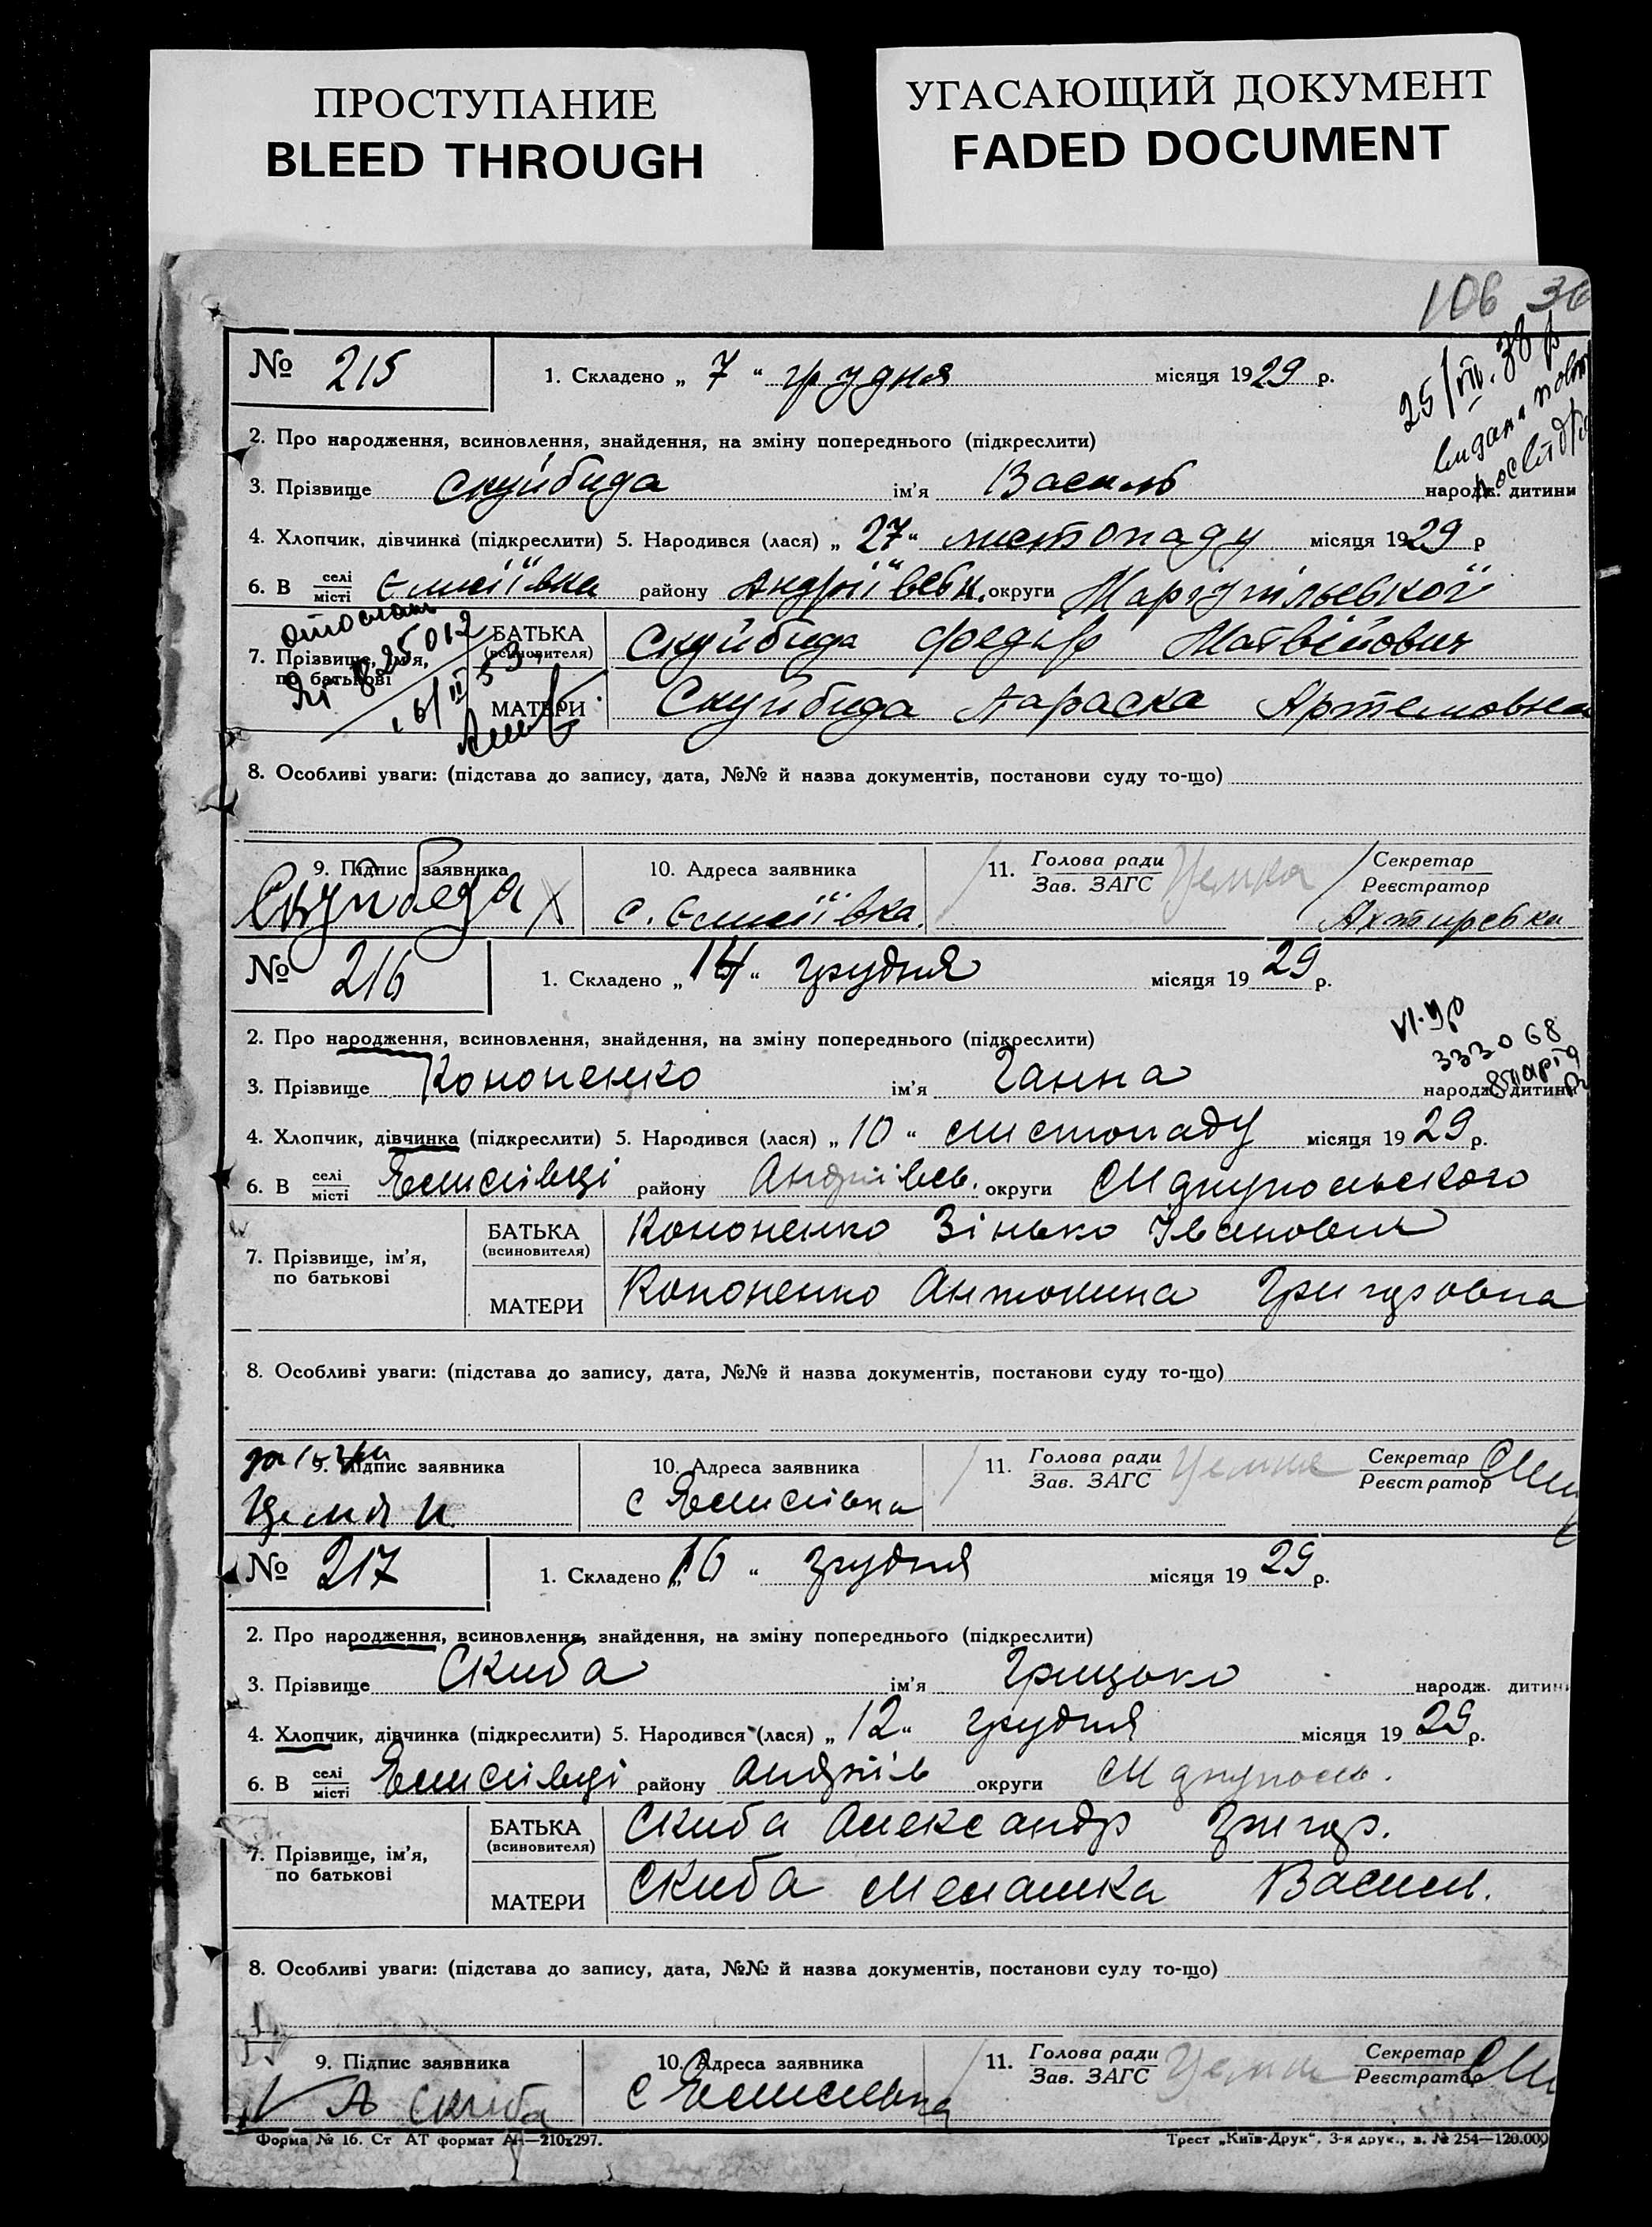 ПРОСТУПАНИЕ
BLEED THROUGH
УГАСАЮЩИЙ ДОКУМЕНТ
FADED DOCUMENT
106 36
№ 215 1. Складено „ 7 “ грудня місяця 1929 р.
25/VIII.38 р
видана повт
2. Про народження, всиновлення, знайдення, на зміну попереднього (підкреслити)
3. Прізвище Скуйбида ім’я Василь народж. дитини
4. Хлопчик, дівчинка (підкреслити) 5. Народився (лася) „ 27 “ листопаду місяця 1929 р
6. В селі місті Єлисіївка району Андріївськ. округи Маріупільської
7. Прізвище, ім’я, по батькові
БАТЬКА (всиновителя) Скуйбида Федір Матвійович
МАТЕРИ Скуйбида Параска Артемовна
8. Особливі уваги: (підстава до запису, дата, №№ й назва документів, постанови суду то-що)
9. Підпис заявника Скуйбеда
10. Адреса заявника с. Єлисіївка.
11. Голова ради Зав. ЗАГС Цемка
Секретар Реєстратор Ахтирська
№ 216 1. Складено „ 14 “ грудня місяця 1929 р.
2. Про народження, всиновлення, знайдення, на зміну попереднього (підкреслити)
333068
3. Прізвище Кононенко ім’я Ганна народж. дитини
4. Хлопчик, дівчинка (підкреслити) 5. Народився (лася) „ 10 “ листопаду місяця 1929 р.
6. В селі місті Єлисіївці району Андріївсь. округи Маріупольского
7. Прізвище, ім’я, по батькові
БАТЬКА (всиновителя) Кононенко Зінько Іванович
МАТЕРИ Кононенко Антонина Григоровна
8. Особливі уваги: (підстава до запису, дата, №№ й назва документів, постанови суду то-що)
9. Підпис заявника
10. Адреса заявника с Єлисіївка
11. Голова ради Зав. ЗАГС
Секретар Реєстратор
№ 217 1. Складено „ 16 “ грудня місяця 1929 р.
2. Про народження, всиновлення, знайдення, на зміну попереднього (підкреслити)
3. Прізвище Скиба ім’я Грицько народж. дитини
4. Хлопчик, дівчинка (підкреслити) 5. Народився (лася) „ 12 “ грудня місяця 1929 р.
6. В селі місті Єлисіївці району Андріїв округи Маріуполь.
7. Прізвище, ім’я, по батькові
БАТЬКА (всиновителя) Скиба Александр Григор.
МАТЕРИ Скиба Мелашка Васил.
8. Особливі уваги: (підстава до запису, дата, №№ й назва документів, постанови суду то-що)
9. Підпис заявника А Скиба
10. Адреса заявника с Єлисіївка
11. Голова ради Зав. ЗАГС
Секретар Реєстратор
Форма № 16. Ст АТ формат А4—210х297.
Трест „Київ-Друк“. 3-я друк., з. № 254—120.000